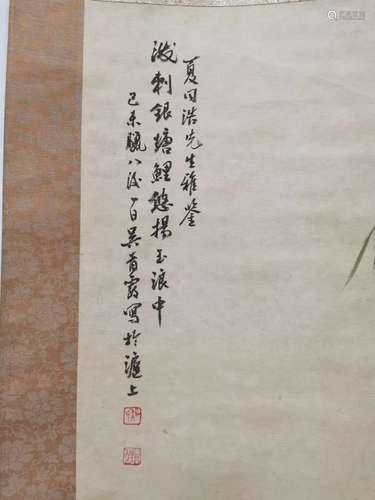 夏日浩先生雅鉴
泼刺银塘鲤悠扬玉浪中
己未腊八后一日吴青霞写于沪上